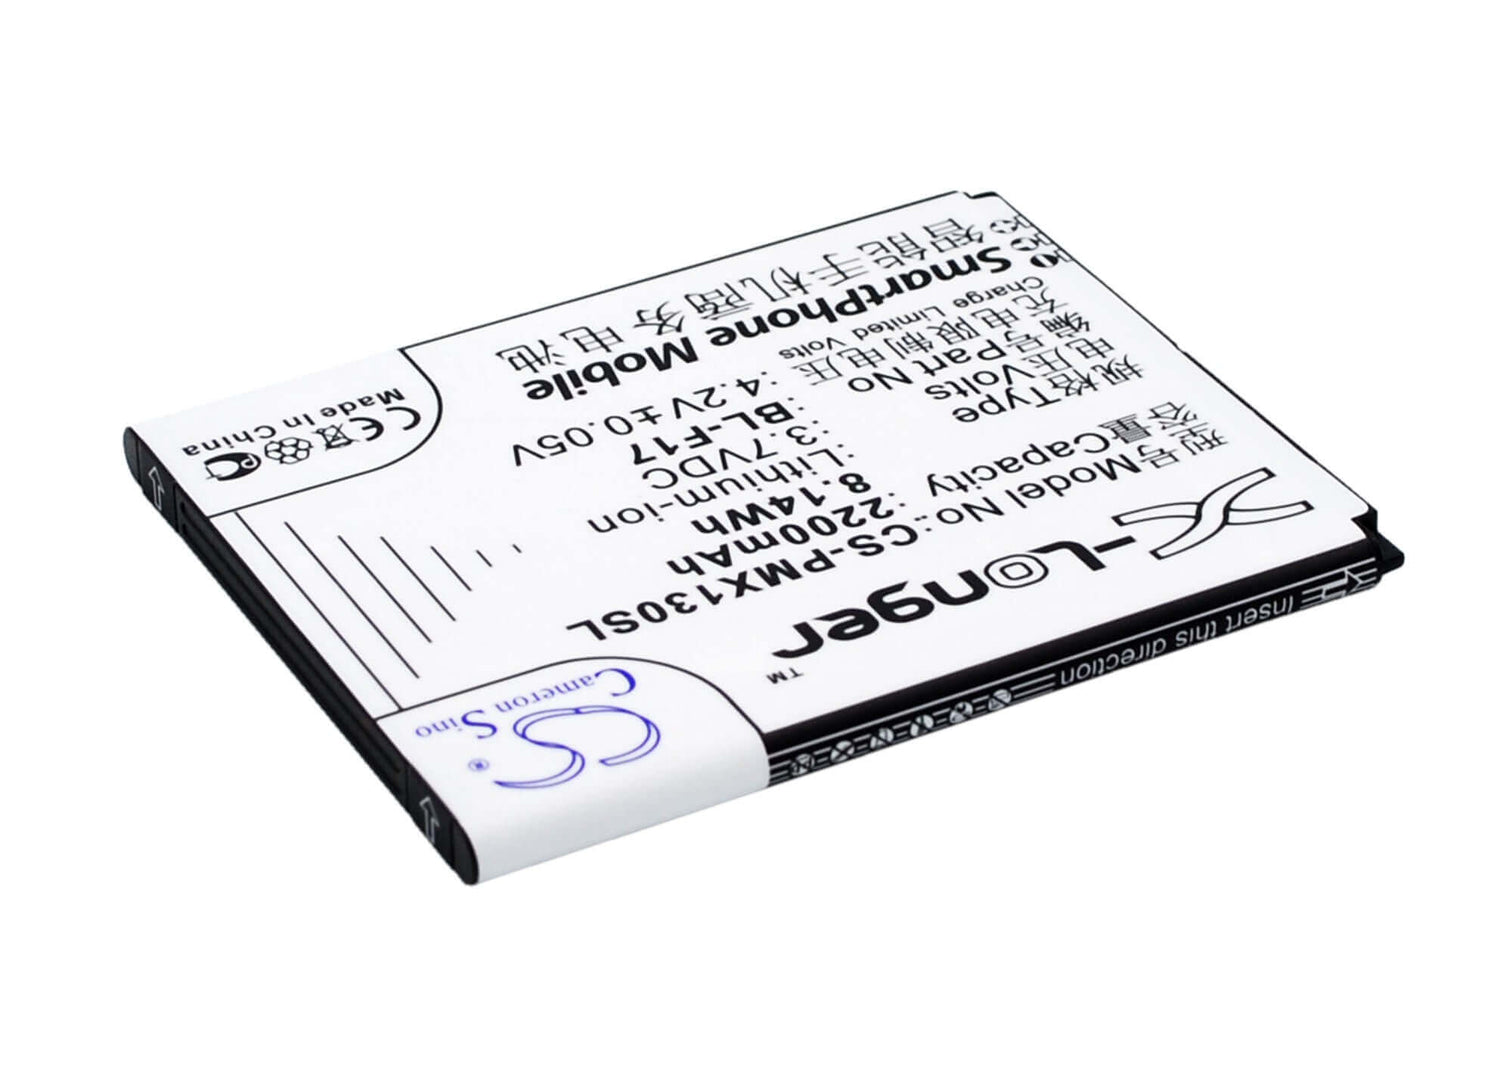 Cameron Sino
CS
®
X-Longer
™
型号Model No.: CS-PMX130SL
容量Capacity : 2200mAh
8.14Wh
规格Type : Lithium-ion
电压Volts : 3.7VDC
编号Part No : BL-F17
充电限制电压: 4.2V±0.05V
Charge Limited Volts
SmartPhone Mobile
智能手机商务电池
CE
PC
Made In China
Insert this direction